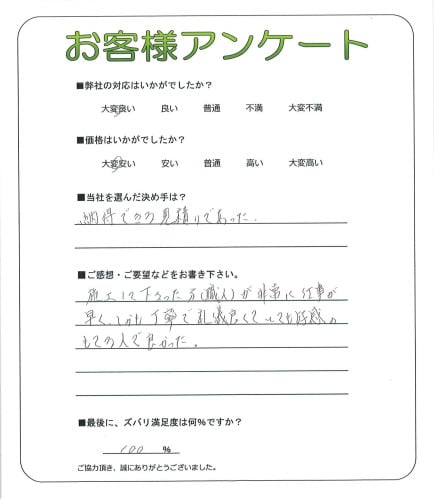 お客様アンケート
■弊社の対応はいかがでしたか？
大変良い 良い 普通 不満 大変不満
■価格はいかがでしたか？
大変安い 安い 普通 高い 大変高い
■当社を選んだ決め手は？
納得できる見積りであった.
■ご感想・ご要望などをお書き下さい。
施工して下さった方(職人)が非常に仕事が
早く、しかも丁寧で礼義良くてとても好感の
もてる人で良かった。
■最後に、ズバリ満足度は何％ですか？
100 ％
ご協力頂き、誠にありがとうございました。